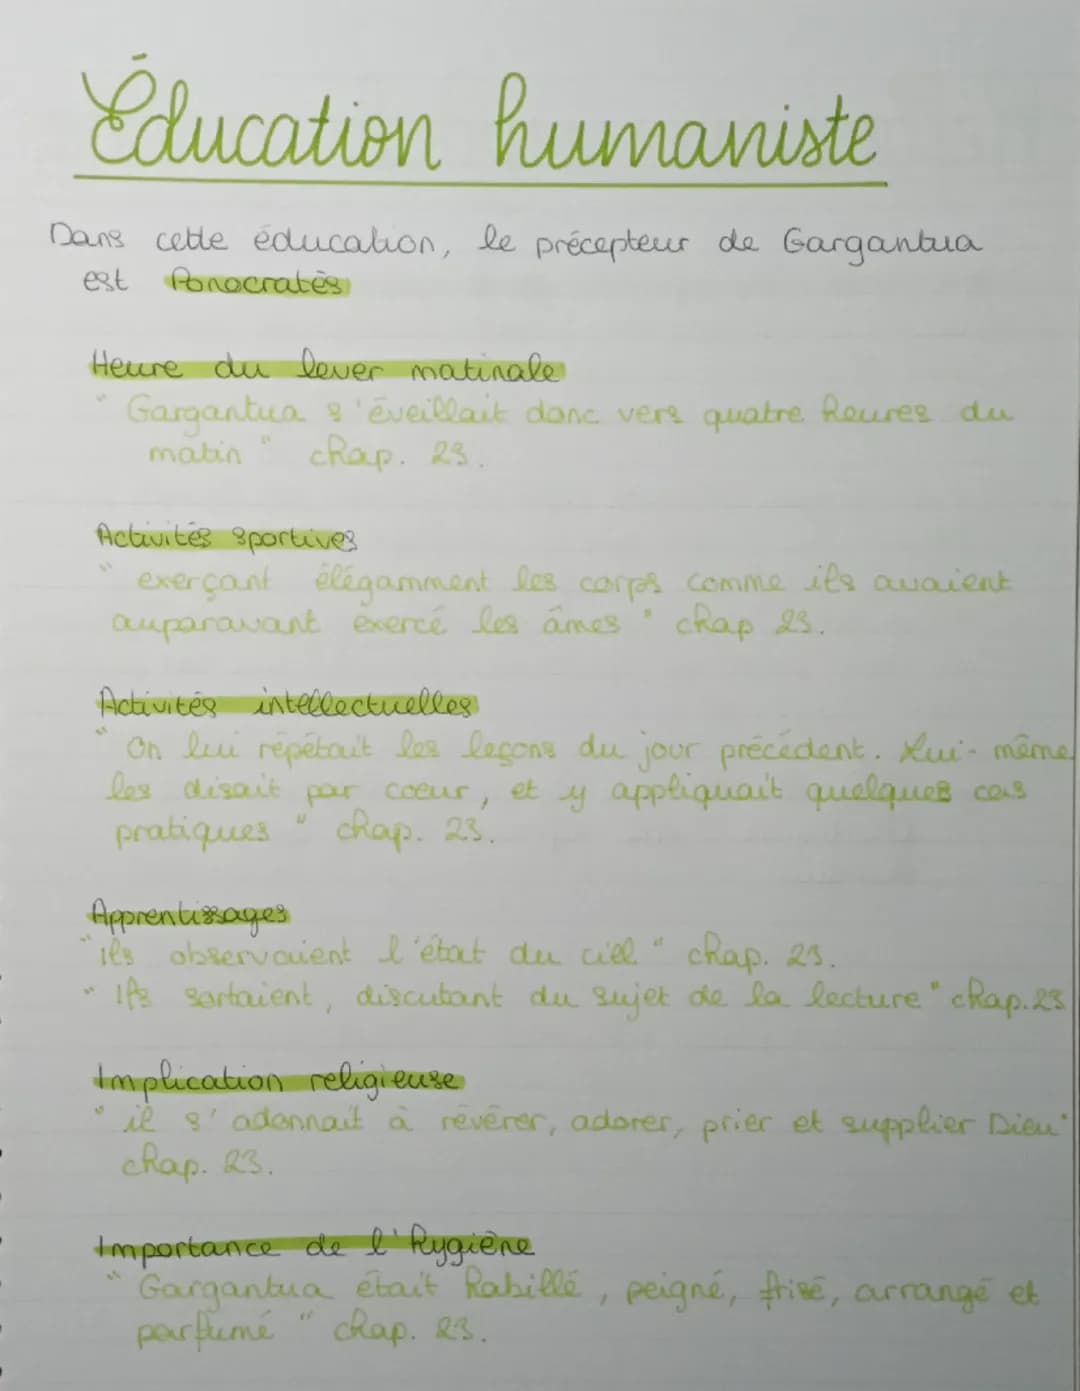 Éducation humaniste
Dans cette éducation, le précepteur de Gargantua
est Ponocratès
Heure du lever matinale
" Gargantua s'éveillait donc vers quatre heures du
matin " chap. 23.
Activités sportives
" exerçant élégamment les corps comme ils avaient
auparavant exercé les âmes " chap 23.
Activités intellectuelles
" On lui répétait les leçons du jour précédent. Lui-même
les disait par cœur, et y appliquait quelques cas
pratiques " chap. 23.
Apprentissages
" ils observaient l'état du ciel " chap. 23.
" Ils sortaient, discutant du sujet de la lecture " chap.23
Implication religieuse
" il s'adonnait à révérer, adorer, prier et supplier Dieu "
chap. 23.
Importance de l'hygiène
" Gargantua était habillé, peigné, frisé, arrangé et
parfumé " chap. 23.